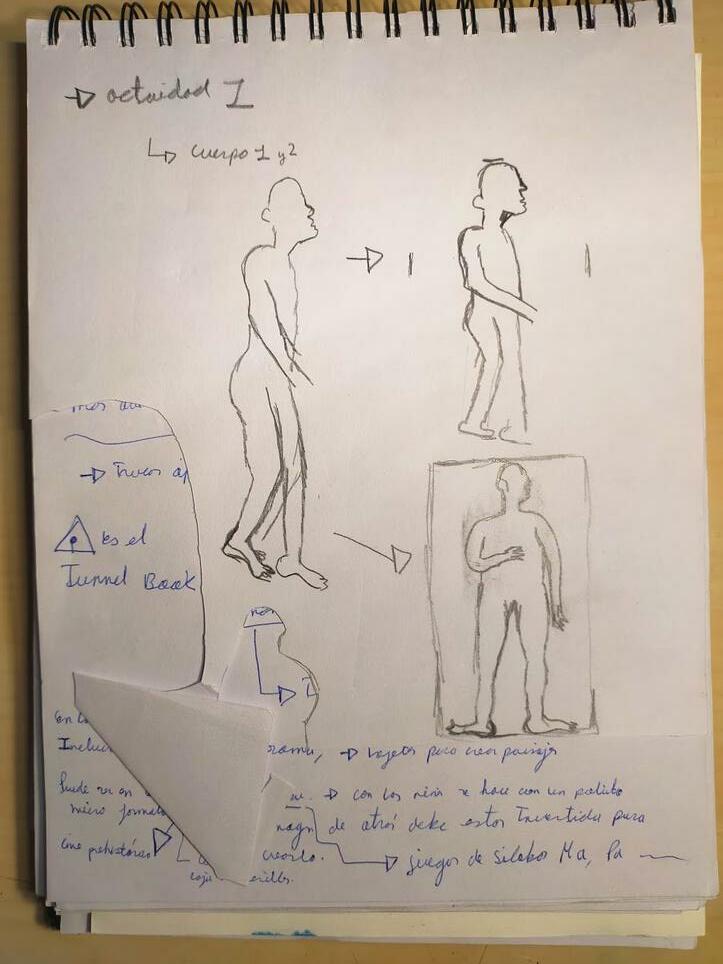 → actividad 1
↳ cuerpo 1 y 2
→ Trucos óp
Es el
Tunnel Book
Inclui
→ tarjetas para crear paisaje
Puede ser en
→ con los niños se hace con un palito
micro formato
de atrás debe estar Invertida para
Cine prehistórico
crearlo.
→ juegos de sílabas Ma, Pa
caja